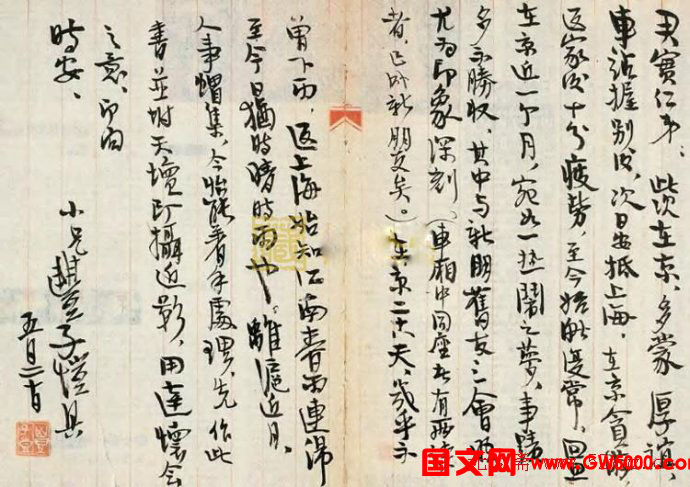 君實仁弟：此次在京，多蒙 厚誼，
車站握別後，次日安抵上海，在京貪
返家後十分疲勞，至今始能復常，回思
在京近一个月，宛如一热鬧之夢，事蹟
多不勝收，其中与新朋舊友之會晤
尤为印象深刻（車廂中同座者有两
者，已新朋友矣。）在京二十天，幾乎不
曾下雨，返上海始知江南春雨連綿
至今日猶時晴時雨也。離滬近月，
人事蝟集，今始能着手處理，先作此
書並附天壇所攝近影，用達懷念
之意，即問
時安、
小兄豐子愷具
五月二日
国文网 www.GW5000.com